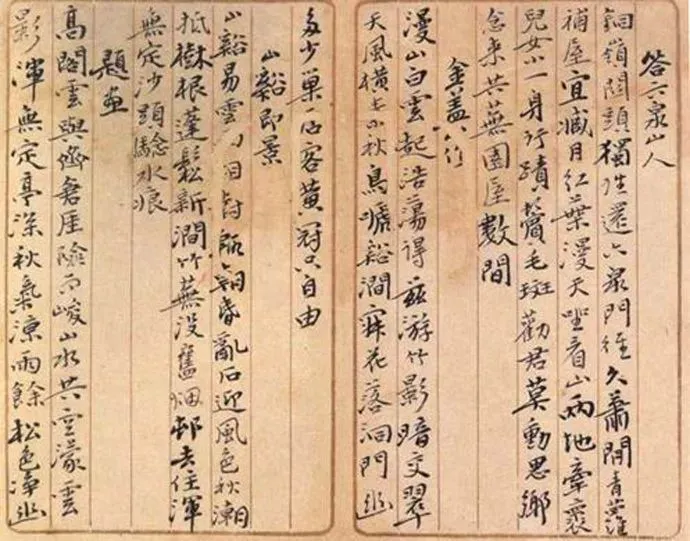 答六泉山人
銅嶺関頭獨往還六泉門徑久蕭閒青蘿
補屋宜藏月紅葉漫天坐看山兩地牽裹
兒女小一身行蹟鬢毛斑勸君莫動思鄉
念来共蕪園屋數間
金蓋山行
漫山白雲起浩蕩得茲游竹影暗交翠
天風橫秋鳥嘑谿澗寂花落洞門幽
多少巢居客黃冠只自由
山谿即景
山谿易雲朝昏亂石迎風色秋潮
抵樹根蓬鬆新澗竹蕪没舊烟邨去住渾
無定沙頭驗水痕
題畫
高閣雲與齊蒼厓險而峻山水共空濛雲
影渾無定亭深秋氣涼雨餘松色淨幽